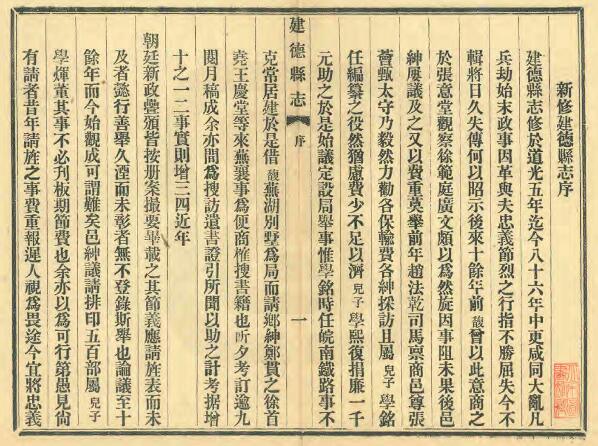 新修建德縣志序
建德縣志修於道光五年迄今八十六年中更咸同大亂凡
兵劫始末政事因革與夫忠義節烈之行指不勝屈失今不
輯將日久失傳何以昭示後來十餘年前馥曾以此意商之
於張意堂觀察徐範庭廣文頗以爲然旋因事阻未果後邑
紳屢議及之又以費重莫舉前年趙法乾司馬禀商邑尊張
薈甄太守乃毅然力勸各保輸費各紳採訪且屬兒子學銘
任編纂之役然猶慮費少不足以濟兒子學熙復捐廉一千
元助之於是始議定設局舉事惟學銘時任皖南鐵路事不
建德縣志 序 一
克常居建於是借馥蕪湖別墅爲局而請鄉紳鄭貫之徐首
堯王慶堂等來蕪襄事爲便商榷搜書籍也昕夕考訂逾九
閱月稿成余亦間爲搜訪遺書證引所聞以助之計考據增
十之一二事實則增三四近年
朝廷新政頒皆按册案撮要畢載之其節義應請旌表而未
及者懿行善舉久湮而未彰者無不登錄斯舉也論議至十
餘年而今始觀成可謂難矣邑紳議請排印五百部屬兒子
學煇董其事不必刋板期節費也余亦以爲可行第愚見尚
有請者昔年請旌之事費重報遲人視爲畏途今宜將忠義